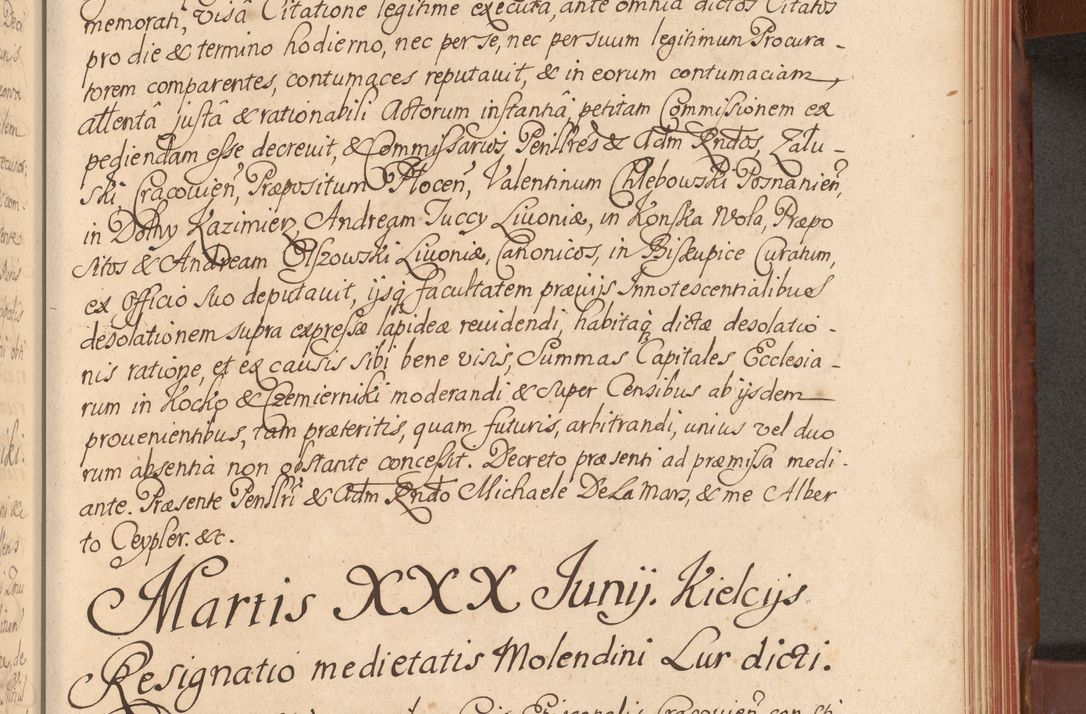 memorati, visâ Citatione legitime executa, ante omnia dictos Citatos
pro die & termino hodierno, nec per se, nec per suum legitimum Procura-
torem comparentes, contumaces reputauit, & in eorum contumaciam,
attentâ justâ & rationabili Actorum instantiâ, petitam Commissionem ex
pediendam esse decreuit, & Commissarios Penllres & Adm Rndos, Zalu-
ski, Cracouien, Præpositum Plocen, Valentinum Chlebowski Posnanien,
in Dolny Kazimierz, Andream Tuccy Liuoniæ, in Konska Wola, Præpo
sitos & Andream Olszowski Liuoniæ, Canonicos, in Biskupice Curatum,
ex Officio suo deputauit, ijsq facultatem præuijs Innotescentialibus
desolationem supra expressæ lapideæ reuidendi, habitaq dictæ desolatio-
nis ratione, et ex causis sibi bene visis, Summas Capitales Ecclesia-
rum in Kocko & Czemierniki moderandi & super Censibus ab ijsdem
prouenientibus, tam præteritis, quam futuris, arbitrandi, unius vel duo
rum absentia non obstante concessit. Decreto præsenti ad præmissa medi-
ante. Præsente Penllri & Adm Rndo Michaele De La Mars, & me Alber
to Ceypler. &c.
Martis XXX Junij. Kielcijs
Resignatio medietatis Molendini Lur dicti.
Episcopalis Cracouien